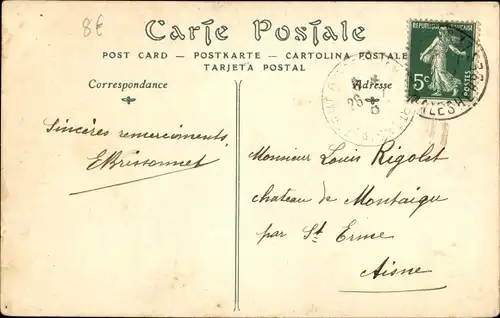 8€
Carte Postale
POST CARD — POSTKARTE — CARTOLINA POSTALE
TARJETA POSTAL
Correspondance
Adresse
REPUBLIQUE FRANÇAISE
5c
POSTES
26
Sincères remerciements,
EBrissonnet
Monsieur Louis Rigolet
chateau de Montaigu
par St Erme
Aisne